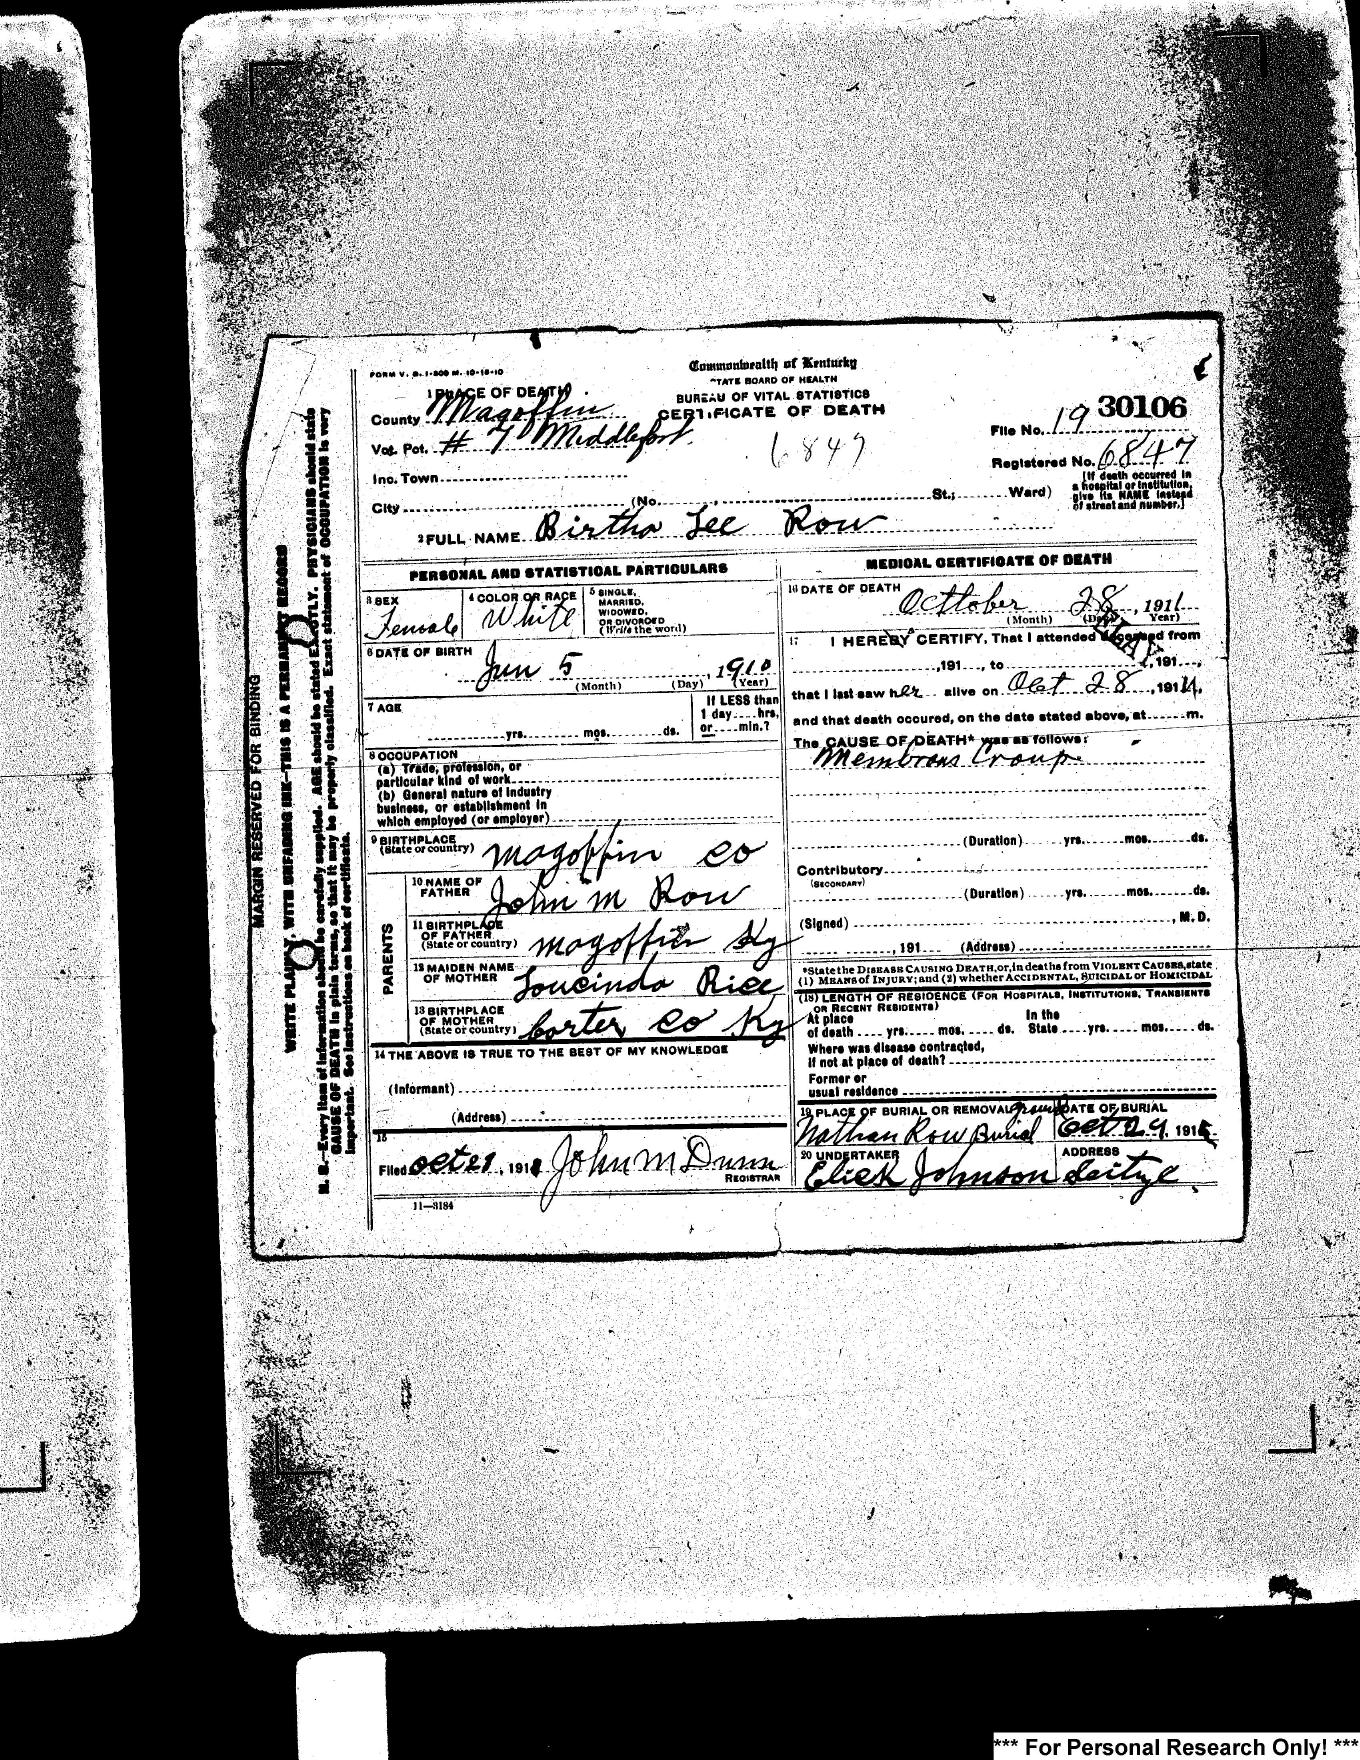 FORM V. S. 1-500 M. 10-18-10
Commonwealth of Kentucky
STATE BOARD OF HEALTH
BUREAU OF VITAL STATISTICS
CERTIFICATE OF DEATH
1 PLACE OF DEATH
County Magoffin
Vot. Pct. # 7 Middlefork
Inc. Town
City (No. , St.; Ward)
6847
30106
File No. 19
Registered No. 6847
[If death occurred in
a hospital or institution,
give its NAME instead
of street and number.]
2 FULL NAME Birtha Lee Row
PERSONAL AND STATISTICAL PARTICULARS
3 SEX
Female
4 COLOR OR RACE
White
5 SINGLE,
MARRIED,
WIDOWED,
OR DIVORCED
(Write the word)
6 DATE OF BIRTH
Jun 5, 1910
(Month) (Day) (Year)
7 AGE
yrs. mos. ds.
If LESS than
1 day....hrs.
or....min.?
8 OCCUPATION
(a) Trade, profession, or
particular kind of work
(b) General nature of industry
business, or establishment in
which employed (or employer)
9 BIRTHPLACE
(State or country) magoffin co
PARENTS
10 NAME OF
FATHER John M Row
11 BIRTHPLACE
OF FATHER
(State or country) magoffin Ky
12 MAIDEN NAME
OF MOTHER Loucinda Rice
13 BIRTHPLACE
OF MOTHER
(State or country) Carter co Ky
14 THE ABOVE IS TRUE TO THE BEST OF MY KNOWLEDGE
(Informant)
(Address)
15
Filed Oct 29, 191 John M Dunn
REGISTRAR
11—3184
MEDICAL CERTIFICATE OF DEATH
16 DATE OF DEATH
Octtober 28, 1911
(Month) (Day) (Year)
17 I HEREBY CERTIFY, That I attended deceased from
, 191 , to , 191 ,
that I last saw her alive on Oct 28, 1911,
and that death occured, on the date stated above, at m.
The CAUSE OF DEATH* was as follows:
Membrans Croup
(Duration) yrs. mos. ds.
Contributory
(SECONDARY)
(Duration) yrs. mos. ds.
(Signed) , M. D.
, 191 (Address)
*State the DISEASE CAUSING DEATH, or, in deaths from VIOLENT CAUSES, state
(1) MEANS of INJURY; and (2) whether ACCIDENTAL, SUICIDAL or HOMICIDAL
(18) LENGTH OF RESIDENCE (FOR HOSPITALS, INSTITUTIONS, TRANSIENTS
OR RECENT RESIDENTS)
At place In the
of death yrs. mos. ds. State yrs. mos. ds.
Where was disease contracted,
if not at place of death?
Former or
usual residence
19 PLACE OF BURIAL OR REMOVAL
Nathan Row Burial
DATE OF BURIAL
Oct 29, 191
20 UNDERTAKER
Elick Johnson
ADDRESS
MARGIN RESERVED FOR BINDING
WRITE PLAINLY, WITH UNFADING INK—THIS IS A PERMANENT RECORD
N. B.—Every item of information should be carefully supplied. AGE should be stated EXACTLY. PHYSICIANS should state
CAUSE OF DEATH in plain terms, so that it may be properly classified. Exact statement of OCCUPATION is very
important. See instructions on back of certificate.
*** For Personal Research Only! ***